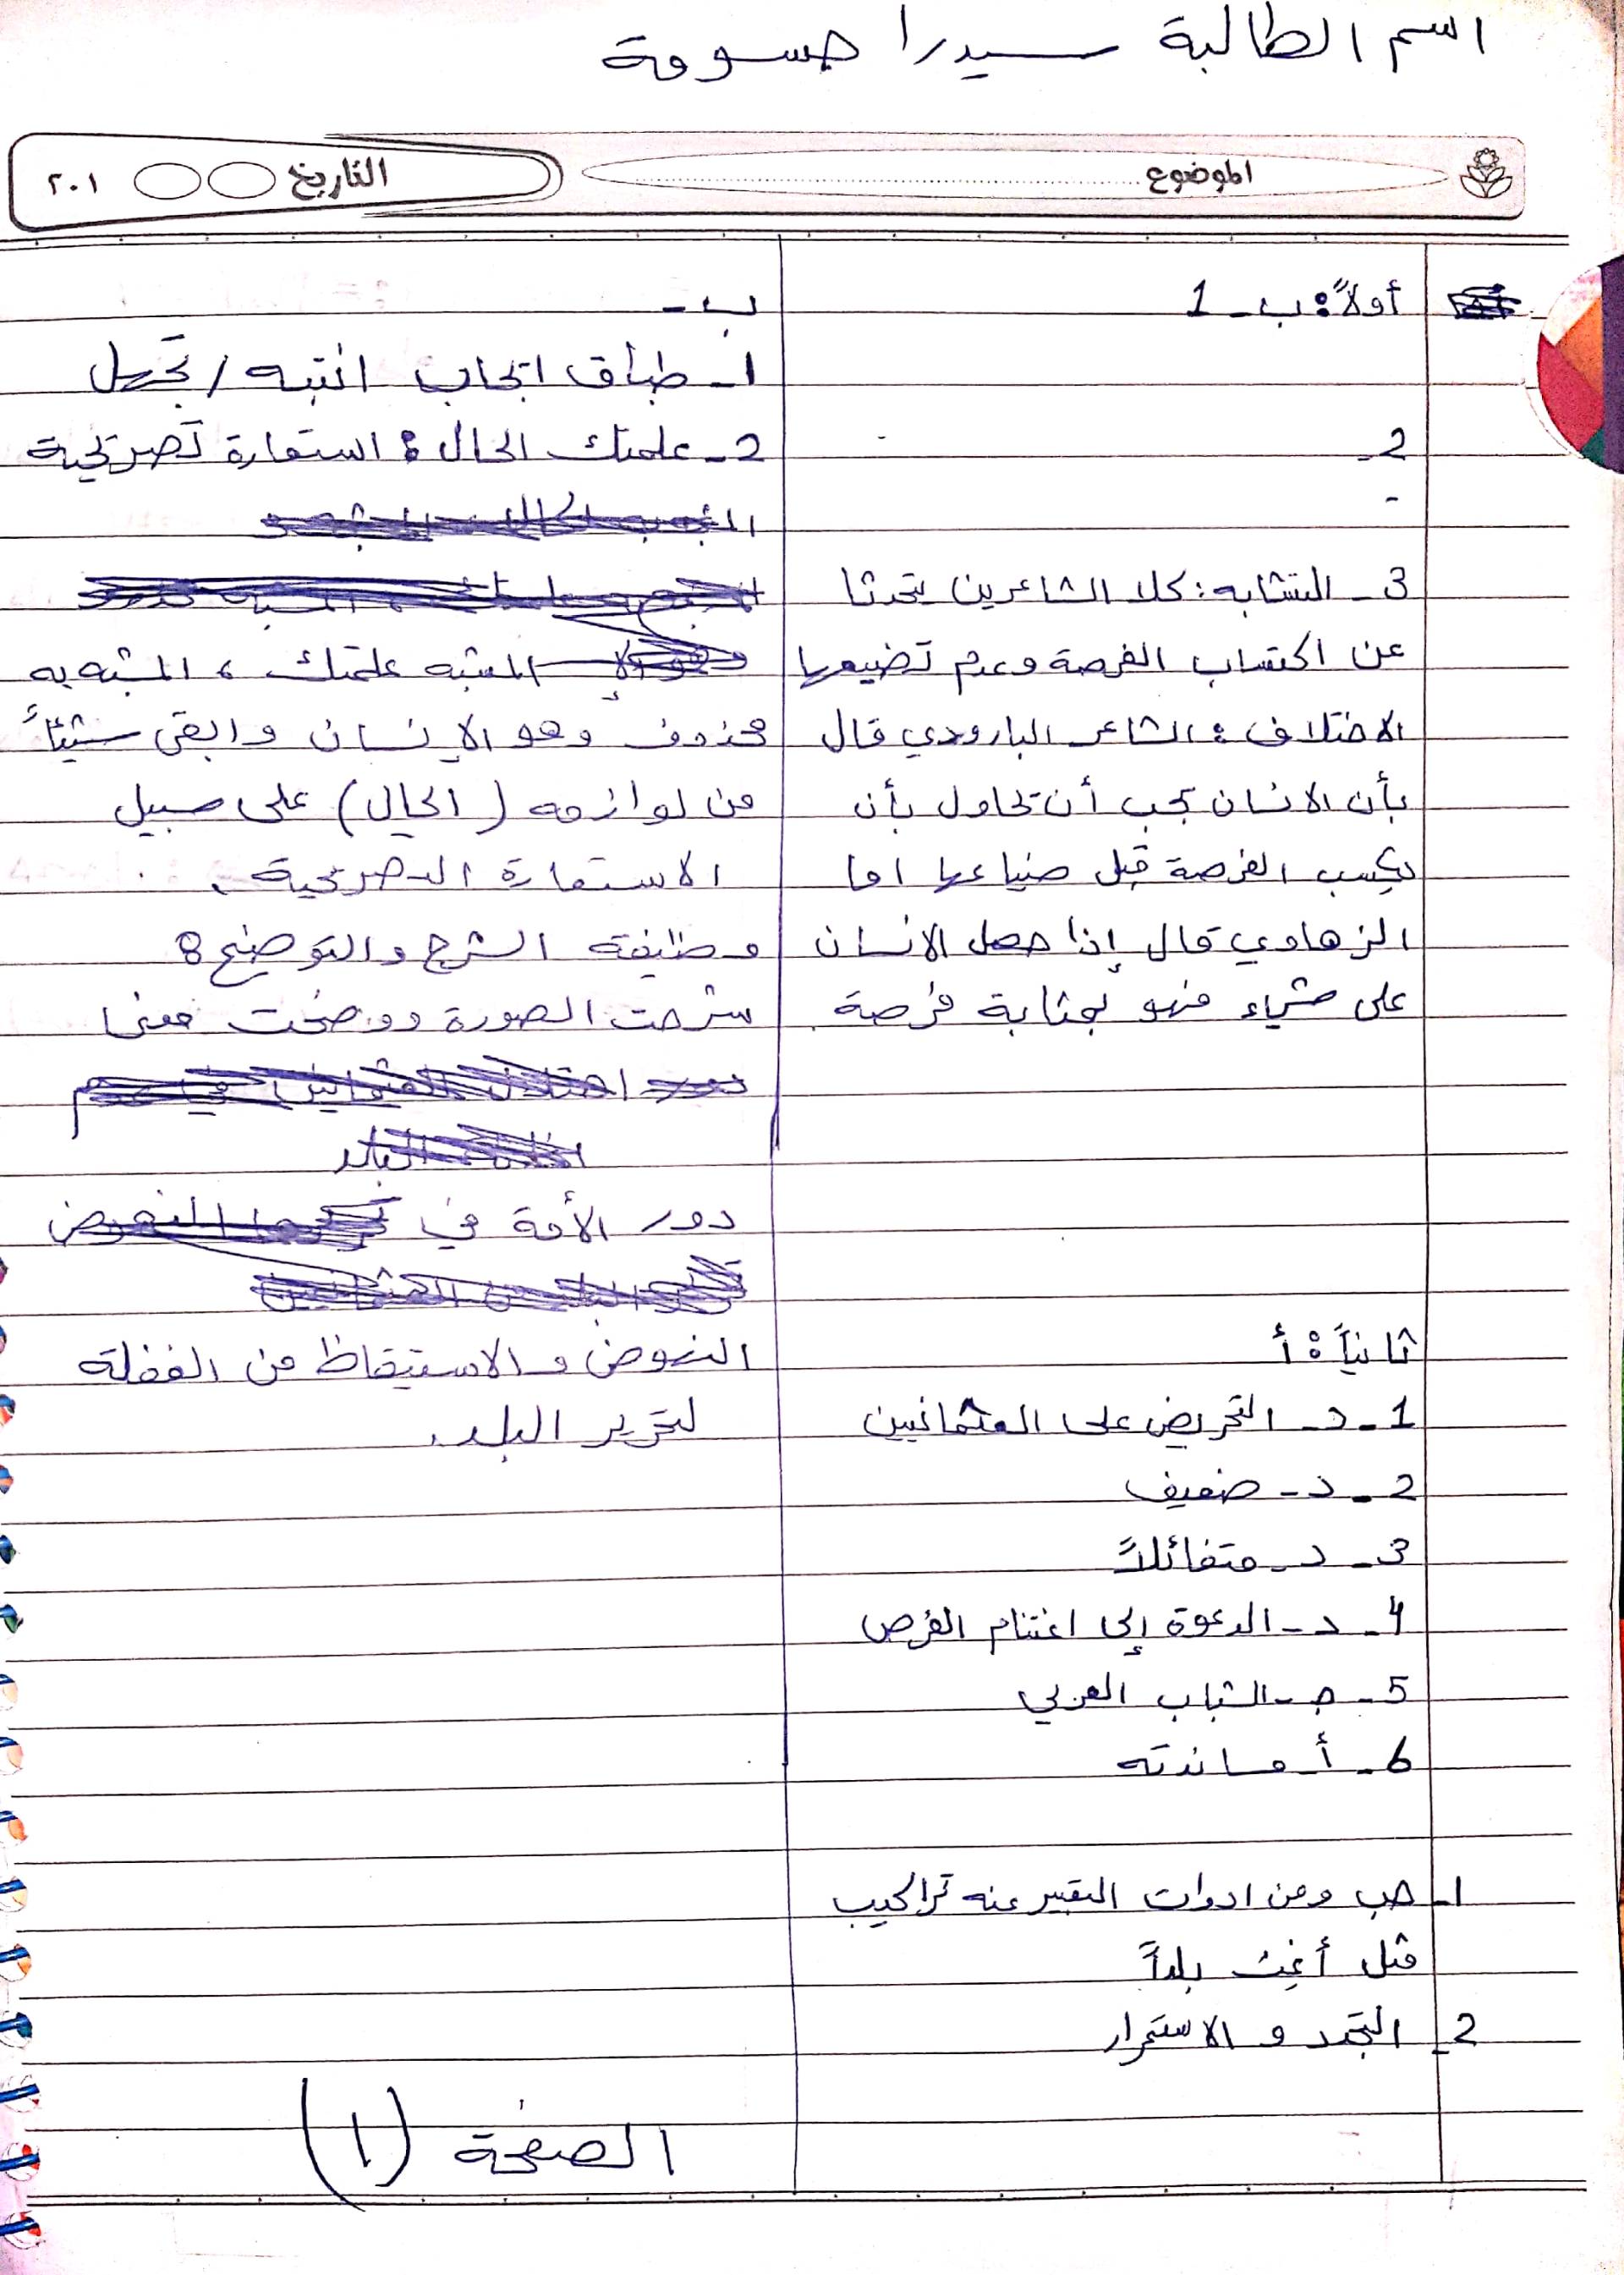 اسم الطالبة سيدرا حسومة
الموضوع
التاريخ
٢٠١
أولاً: ب - 1
2 -
-
3 - التشابه: كلا الشاعرين يتحدثا
عن اكتساب الفرصة وعدم تضييعها
الاختلاف: الشاعر البارودي قال
بأن الانسان يجب أن يحاول بأن
يكسب الفرصة قبل ضياعها اما
الزهاوي قال إذا حصل الانسان
على شيء فهو بمثابة فرصة.
ثانياً: أ
1 - د - التحريض على العثمانيين
2 - د - ضعيف
3 - د - متفائلاً
4 - د - الدعوة إلى اغتنام الفرص
5 - ج - الشباب العربي
6 - أ - ساندته
1 - حب ومن ادوات التعبير عنه تراكيب
مثل أغث بلداً
2 - التجدد و الاستمرار
ب -
1 - طباق ايجاب انتبه / تجهل
2 - علمتك الحال: استعارة تصريحية
المشبه علمتك، المشبه به
محذوف وهو الإنسان وابقى شيئاً
من لوازمه (الحال) على سبيل
الاستعارة التصريحية.
وظيفته الشرح والتوضيح:
شرحت الصورة ووضحت معنى
دور الأمة في
النهوض والاستيقاظ من الغفلة
لتحرير البلد.
الصفحة (1)